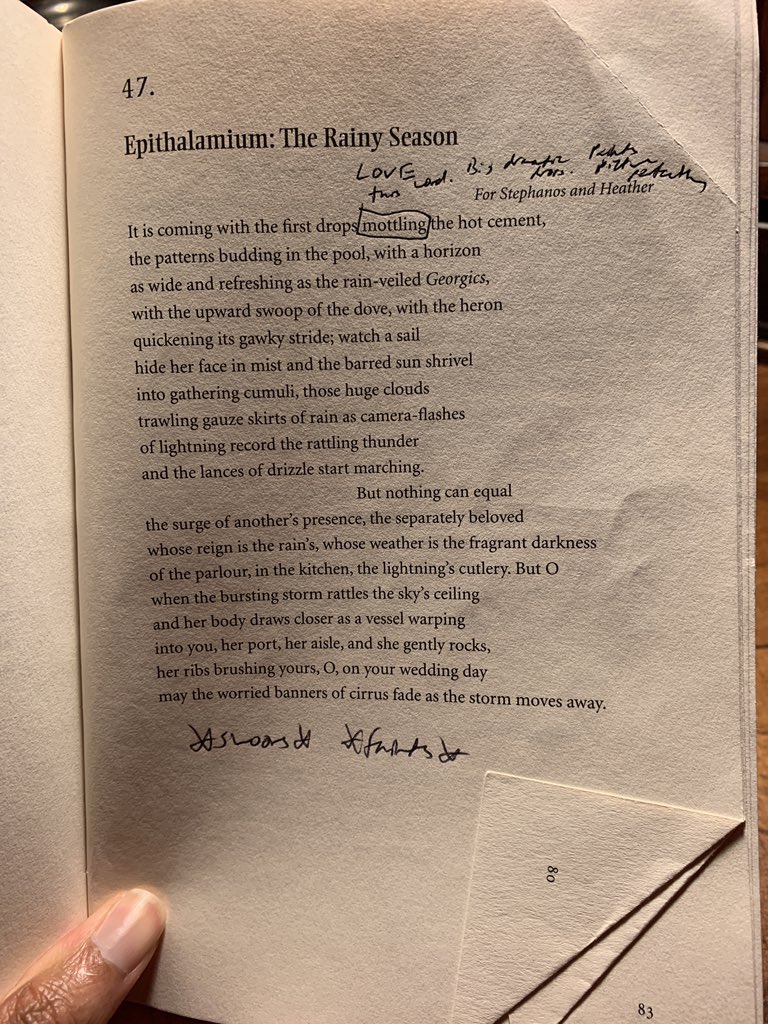 47.
Epithalamium: The Rainy Season
LOVE this word. Big dramatic drops.
For Stephanos and Heather
It is coming with the first drops mottling the hot cement,
the patterns budding in the pool, with a horizon
as wide and refreshing as the rain-veiled Georgics,
with the upward swoop of the dove, with the heron
quickening its gawky stride; watch a sail
hide her face in mist and the barred sun shrivel
into gathering cumuli, those huge clouds
trawling gauze skirts of rain as camera-flashes
of lightning record the rattling thunder
and the lances of drizzle start marching.
But nothing can equal
the surge of another's presence, the separately beloved
whose reign is the rain's, whose weather is the fragrant darkness
of the parlour, in the kitchen, the lightning's cutlery. But O
when the bursting storm rattles the sky's ceiling
and her body draws closer as a vessel warping
into you, her port, her aisle, and she gently rocks,
her ribs brushing yours, O, on your wedding day
may the worried banners of cirrus fade as the storm moves away.
*swoons* *faints*
80
83